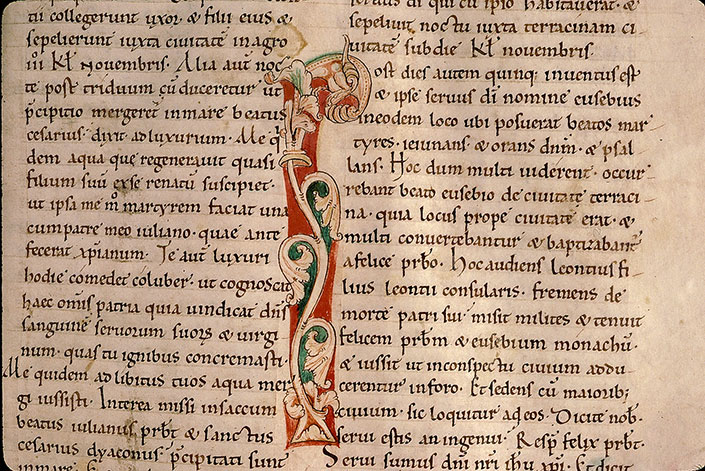 tii collegerunt uxor & filii eius &
sepelierunt iuxta ciuitatē in agro
iiii Kł nouembris. Alia aut̄ noc
te post triduum cū duceretur ut
p̄cipitio mergeret̄ in mare beatus
cesarius dixit ad luxurium. Me q̄
dem aqua que regenerauit quasi
filium suū ex se renatū suscipiet.
ut ipsa me m̊ martyrem faciat una
cum patre meo iuliano. quae ante
fecerat xp̄ianum. Te aut̄ luxuri
hodie comedet coluber. ut cognoscat
haec om̄is patria quia uindicat dn̄s
sanguinē seruorum suoꝝ & uirgi
num. quas tu ignibus concremasti
Me quidem ad libitus tuos aqua mer
gi iussisti. Interea missi in saccum
beatus iulianus prb̄t & sanctus
cesarius dyaconus p̄cipitati sunt
sepeliuit noctu iuxta terracinam ci
uitatē sub die Kł nouembris.
Post dies autem quinq; inuentus est
& ipse seruus dī nomine eusebius
in eodem loco ubi posuerat beatos mar
tyres. ieiunans & orans dn̄m. & psal
lans. Hoc dum multi uiderent. occur
rebant beato eusebio de ciuitate terraci
na. quia locus prope ciuitatē erat. &
multi conuertebantur & baptizabant̄
a felice prb̄o. Hoc audiens leontius fi
lius leontii consularis. fremens de
morte patri sui misit milites & tenuit
felicem prb̄m & eusebium monachū.
& iussit ut in conspectu ciuium addu
cerentur in foro. Et sedens cū maiorib;
ciuium. sic loquitur ad eos. Dicite nob̄.
serui estis an ingenui. Resp̄ felix prb̄t.
Serui sumus dn̄i nr̄i ihū xp̄i. Et dicit